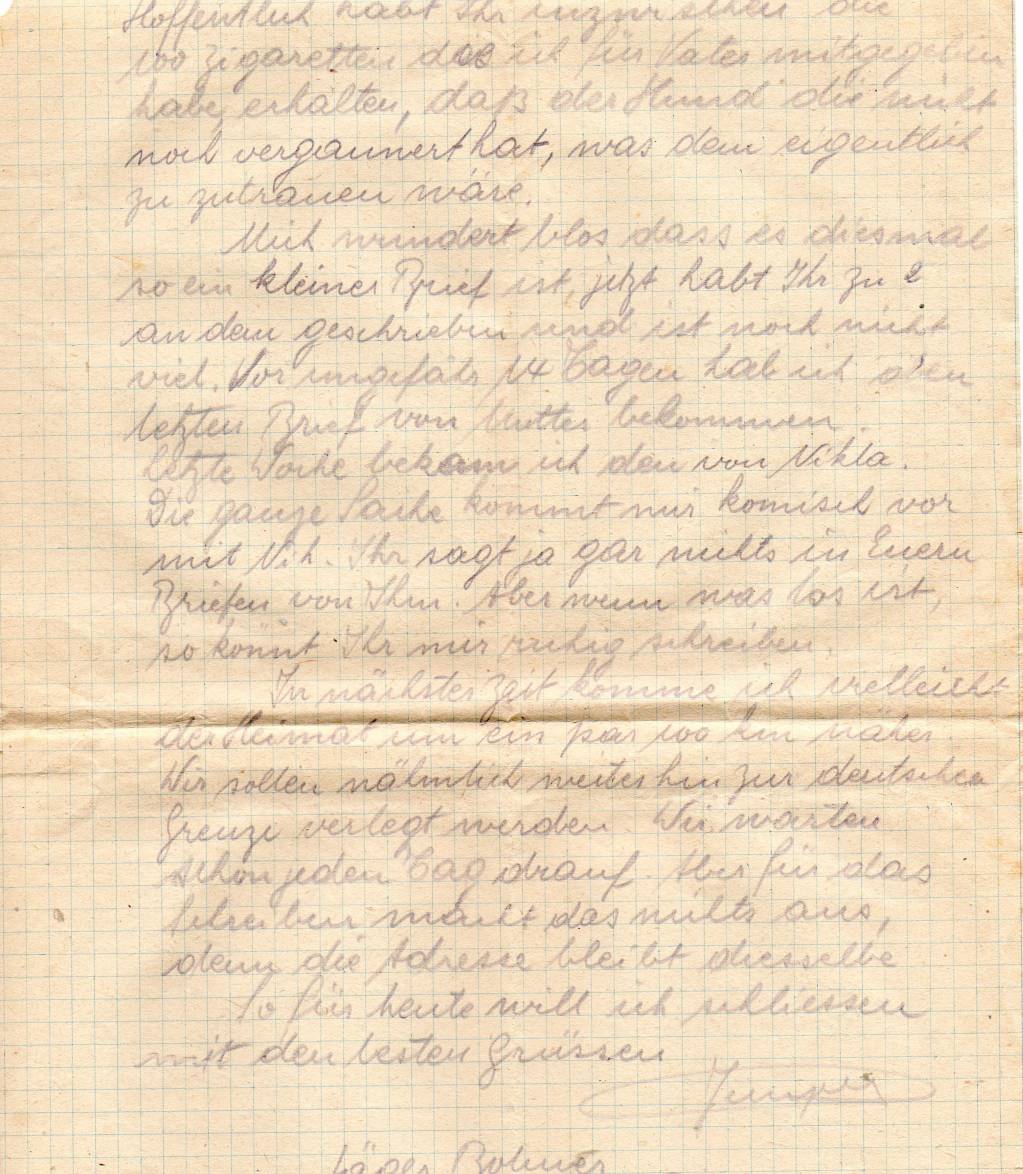 Hoffentlich habt Ihr inzwischen die
100 Zigaretten die ich für Vater mitgegeben
habe, erhalten, daß der Hund die nicht
noch vergaunert hat, was dem eigentlich
zu zutrauen wäre.
Mich wundert blos dass es diesmal
so ein kleiner Brief ist, jetzt habt Ihr zu 2
an dem geschrieben und ist noch nicht
viel. Vor ungefähr 14 Tagen hab ich den
letzten Brief von Mutter bekommen.
Letzte Woche bekam ich den von Nikla.
Die ganze Sache kommt mir komisch vor
mit Nik. Ihr sagt ja gar nichts in Euern
Briefen von Ihm. Aber wenn was los ist,
so könnt Ihr mir ruhig schreiben.
In nächster Zeit komme ich vielleicht
der Heimat um ein par 100 km näher.
Wir sollen nähmlich weiter hin zur deutschen
Grenze verlegt werden. Wir warten
schon jeden Tag drauf. Aber für das
schreiben macht das nichts aus,
denn die Adresse bleibt diesselbe
So für heute will ich schliessen
mit den besten Grüssen
Jäger